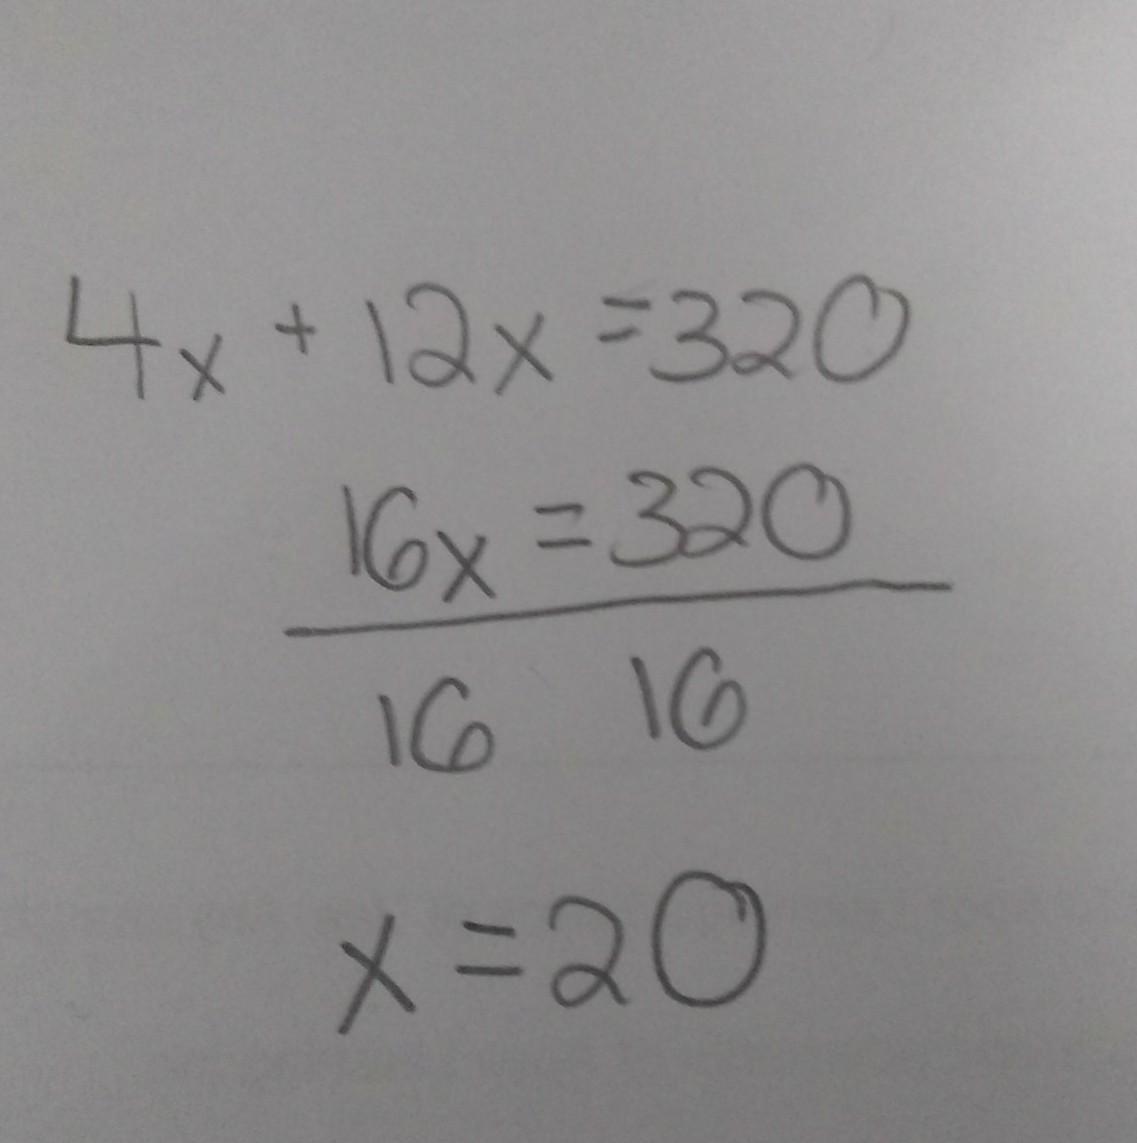 4x + 12x = 320
16x = 320
16 16
x = 20